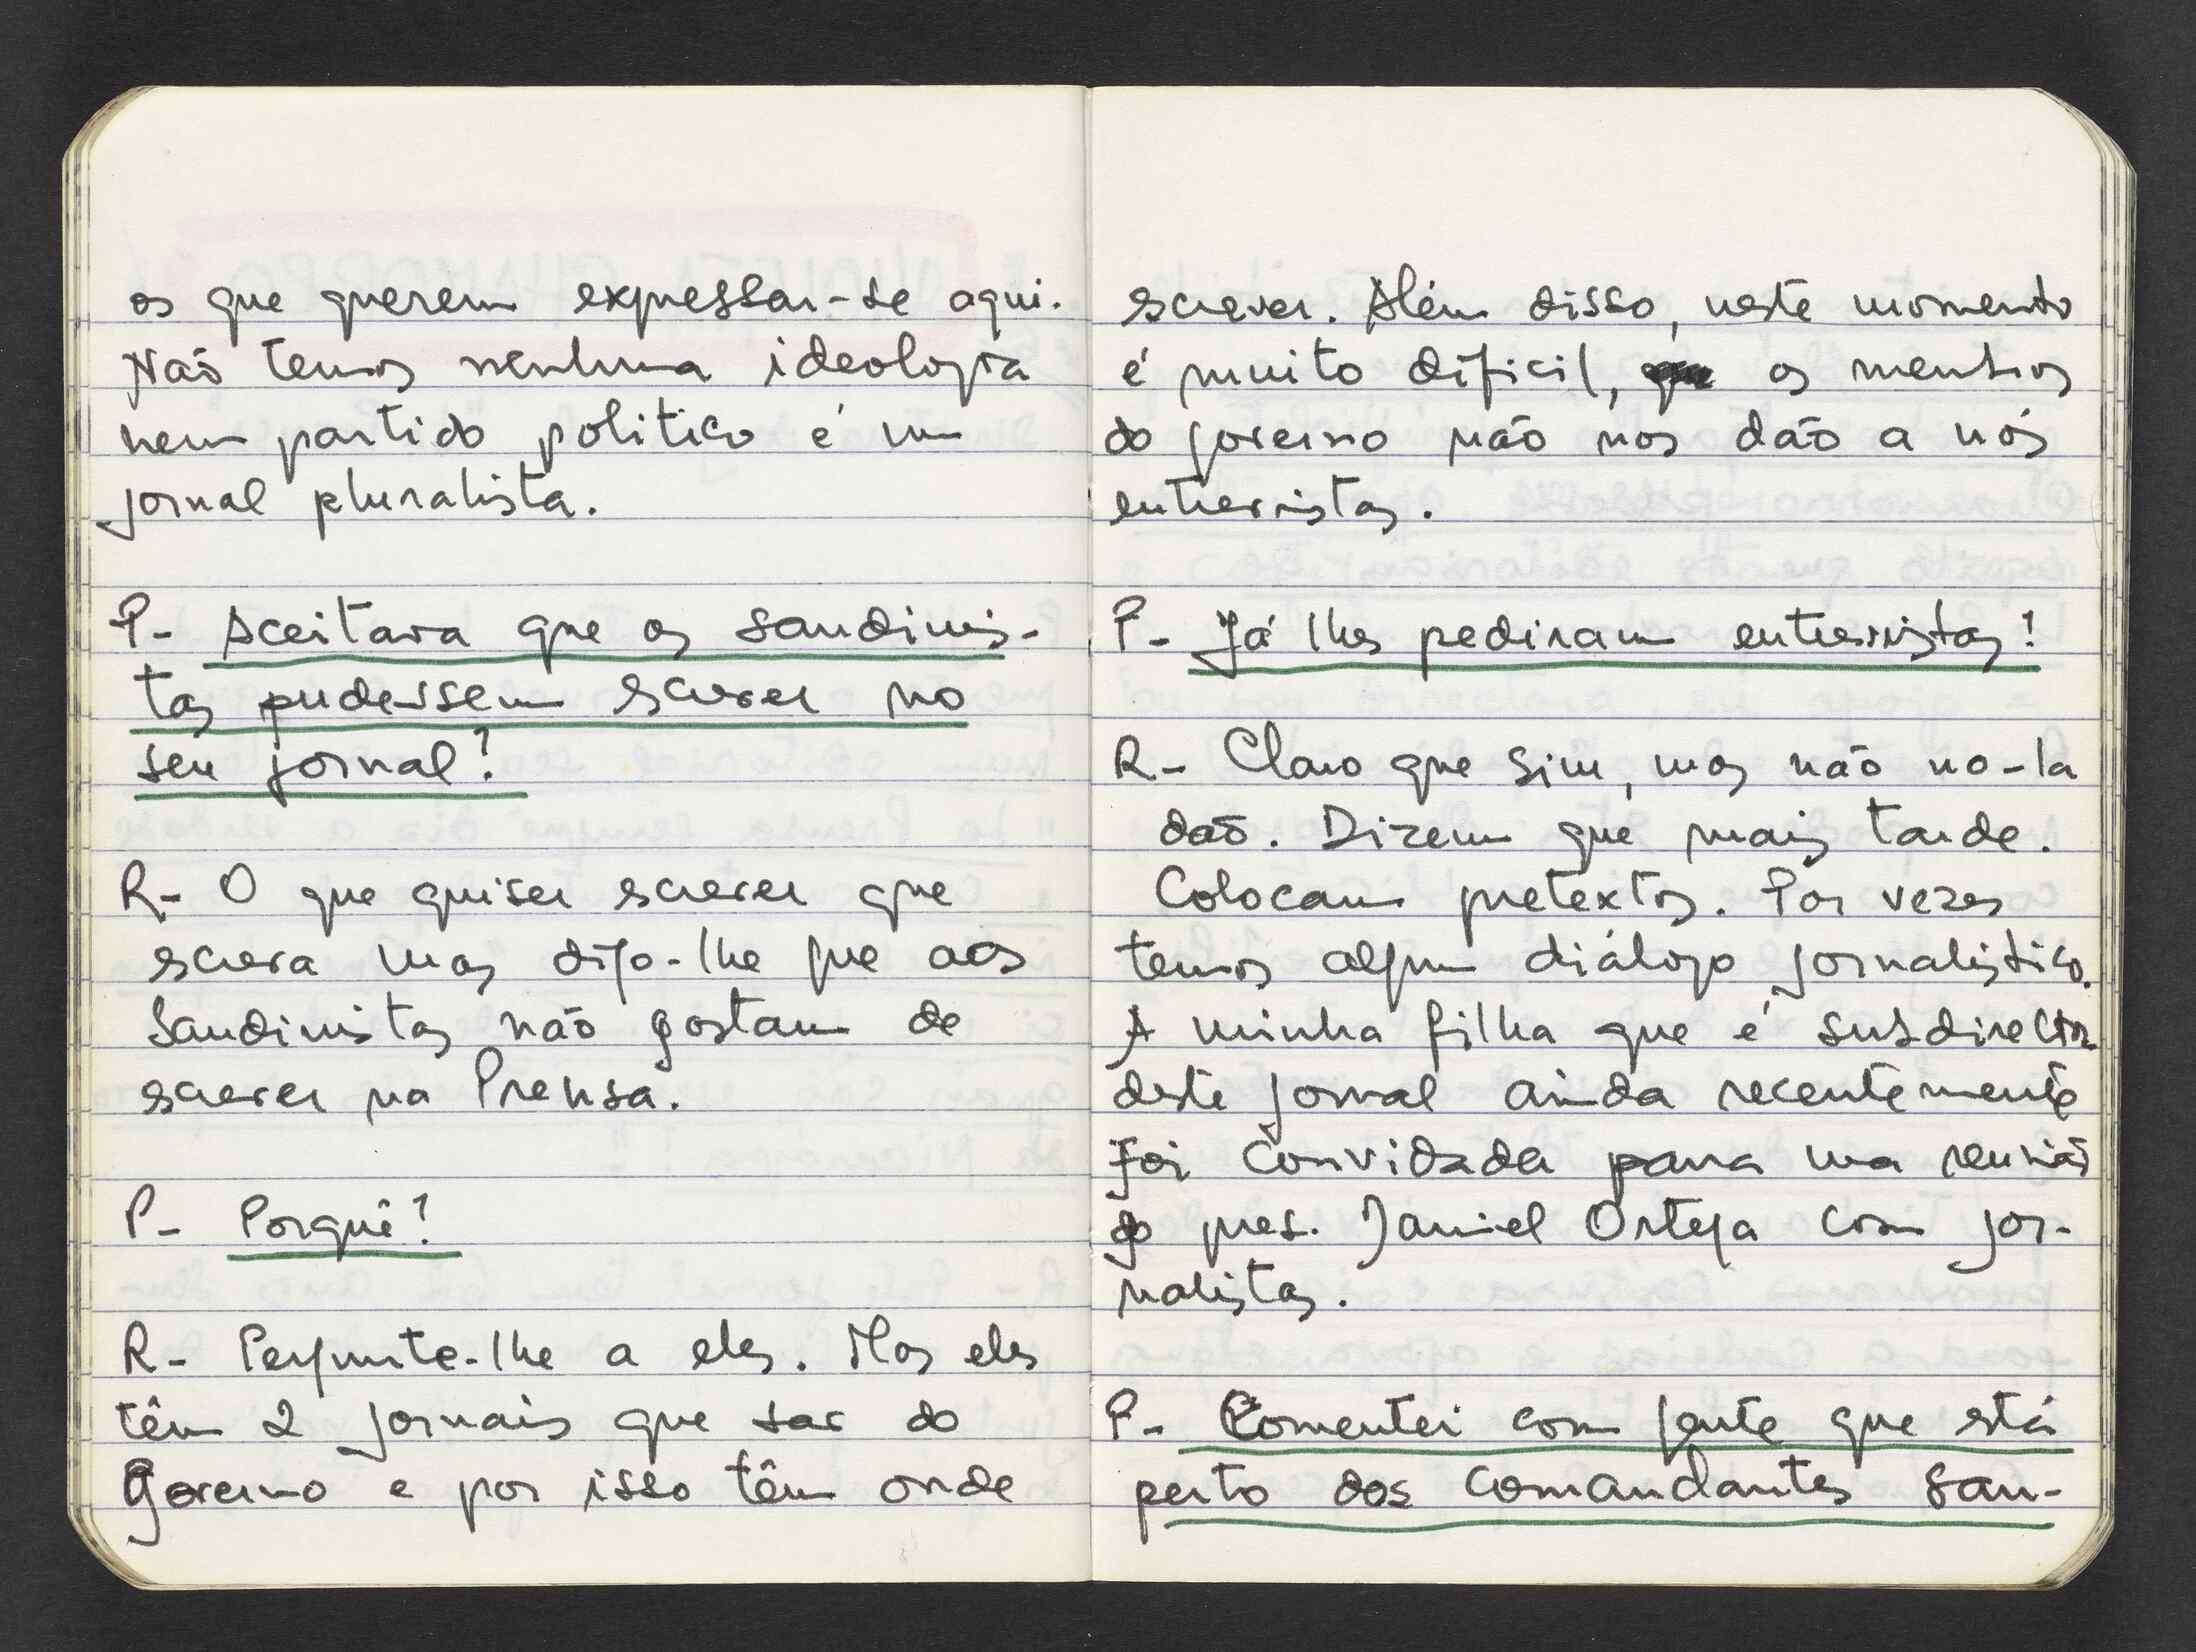 os que querem expressar-se aqui.
Não temos nenhuma ideologia
nem partido politico é um
jornal pluralista.
P- Aceitava que os sandinis-
tas pudessem escrever no
seu jornal?
R- O que quiser escrever que
escreva mas digo-lhe que aos
Sandinistas não gostam de
escrever na Prensa.
P- Porquê?
R- Pergunte-lhe a eles. Mas eles
têm 2 jornais que sao do
Governo e por isso têm onde
escrever. Além disso, neste momento
é muito dificil, os membros
do governo não nos dão a nós
entrevistas.
P- Já lhes pediram entrevistas?
R- Claro que sim, mas não no-la
dão. Dizem que mais tarde.
Colocam pretextos. Por vezes
temos algum diálogo jornalistico.
A minha filha que é subdirectora
deste jornal ainda recentemente
foi convidada para uma reunião
do pres. Daniel Ortega com jor-
nalistas.
P- Comentei com gente que está
perto dos comandantes San-